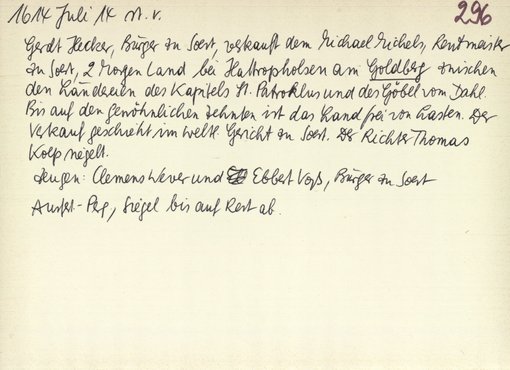 1614 Juli 14 st. v.
296
Gerdt Hecker, Bürger zu Soest, verkauft dem Michael Michels, Rentmeister
zu Soest, 2 Morgen Land bei Hattropholsen am Goldberg zwischen
den Ländereien des Kapitels St. Patroklus und des Göbel vom Dahl.
Bis auf den gewöhnlichen Zehnten ist das Land frei von Lasten. Der
Verkauf geschieht im weltl. Gericht zu Soest. Der Richter Thomas
Kolp siegelt.
Zeugen: Clemens Wever und Ebbert Voß, Bürger zu Soest
Ausf.- Perg, Siegel bis auf Rest ab.